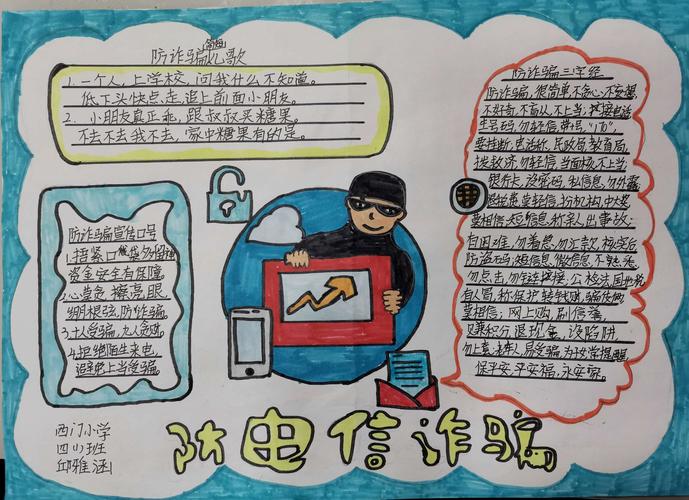 防诈骗儿歌
简短
1. 一个人，上学校，问我什么不知道。
低下头快点走，追上前面小朋友。
2. 小朋友真正乖，跟叔叔买糖果。
不去不去我不去，家中糖果有的是。
防诈骗宣传口号
1. 捂紧口袋多留神
资金安全有保障
2. 心莫贪 擦亮眼
绷根弦，防诈骗
3. 十人受骗，九人贪财
4. 拒绝陌生来电，
避免上当受骗
防诈骗三字经
防诈骗，很简单，不贪心，不妄想，
不好奇，不盲从，不上当，
生号码，勿轻信，带号，"100"，
要挂断，电话断，民政局，教育局，
拨救济，勿轻信，当面核，不上当，
银行卡，设密码，私信息，勿外露，
莫相信，短信息，称亲人，出事故，
目困难，勿着急，勿汇款，核实后
防盗码，短信息，微信息，不转悉，
勿点击，勿轻链接，公检法，国地税
有人冒，称保护，转钱财，骗伎俩，
莫相信，网上购，刷信誉，
兑兼积分，退现金，设陷阱，
保平安，平安福，永安家。
西门小学
四(1)班
邱雅涵
防电信诈骗